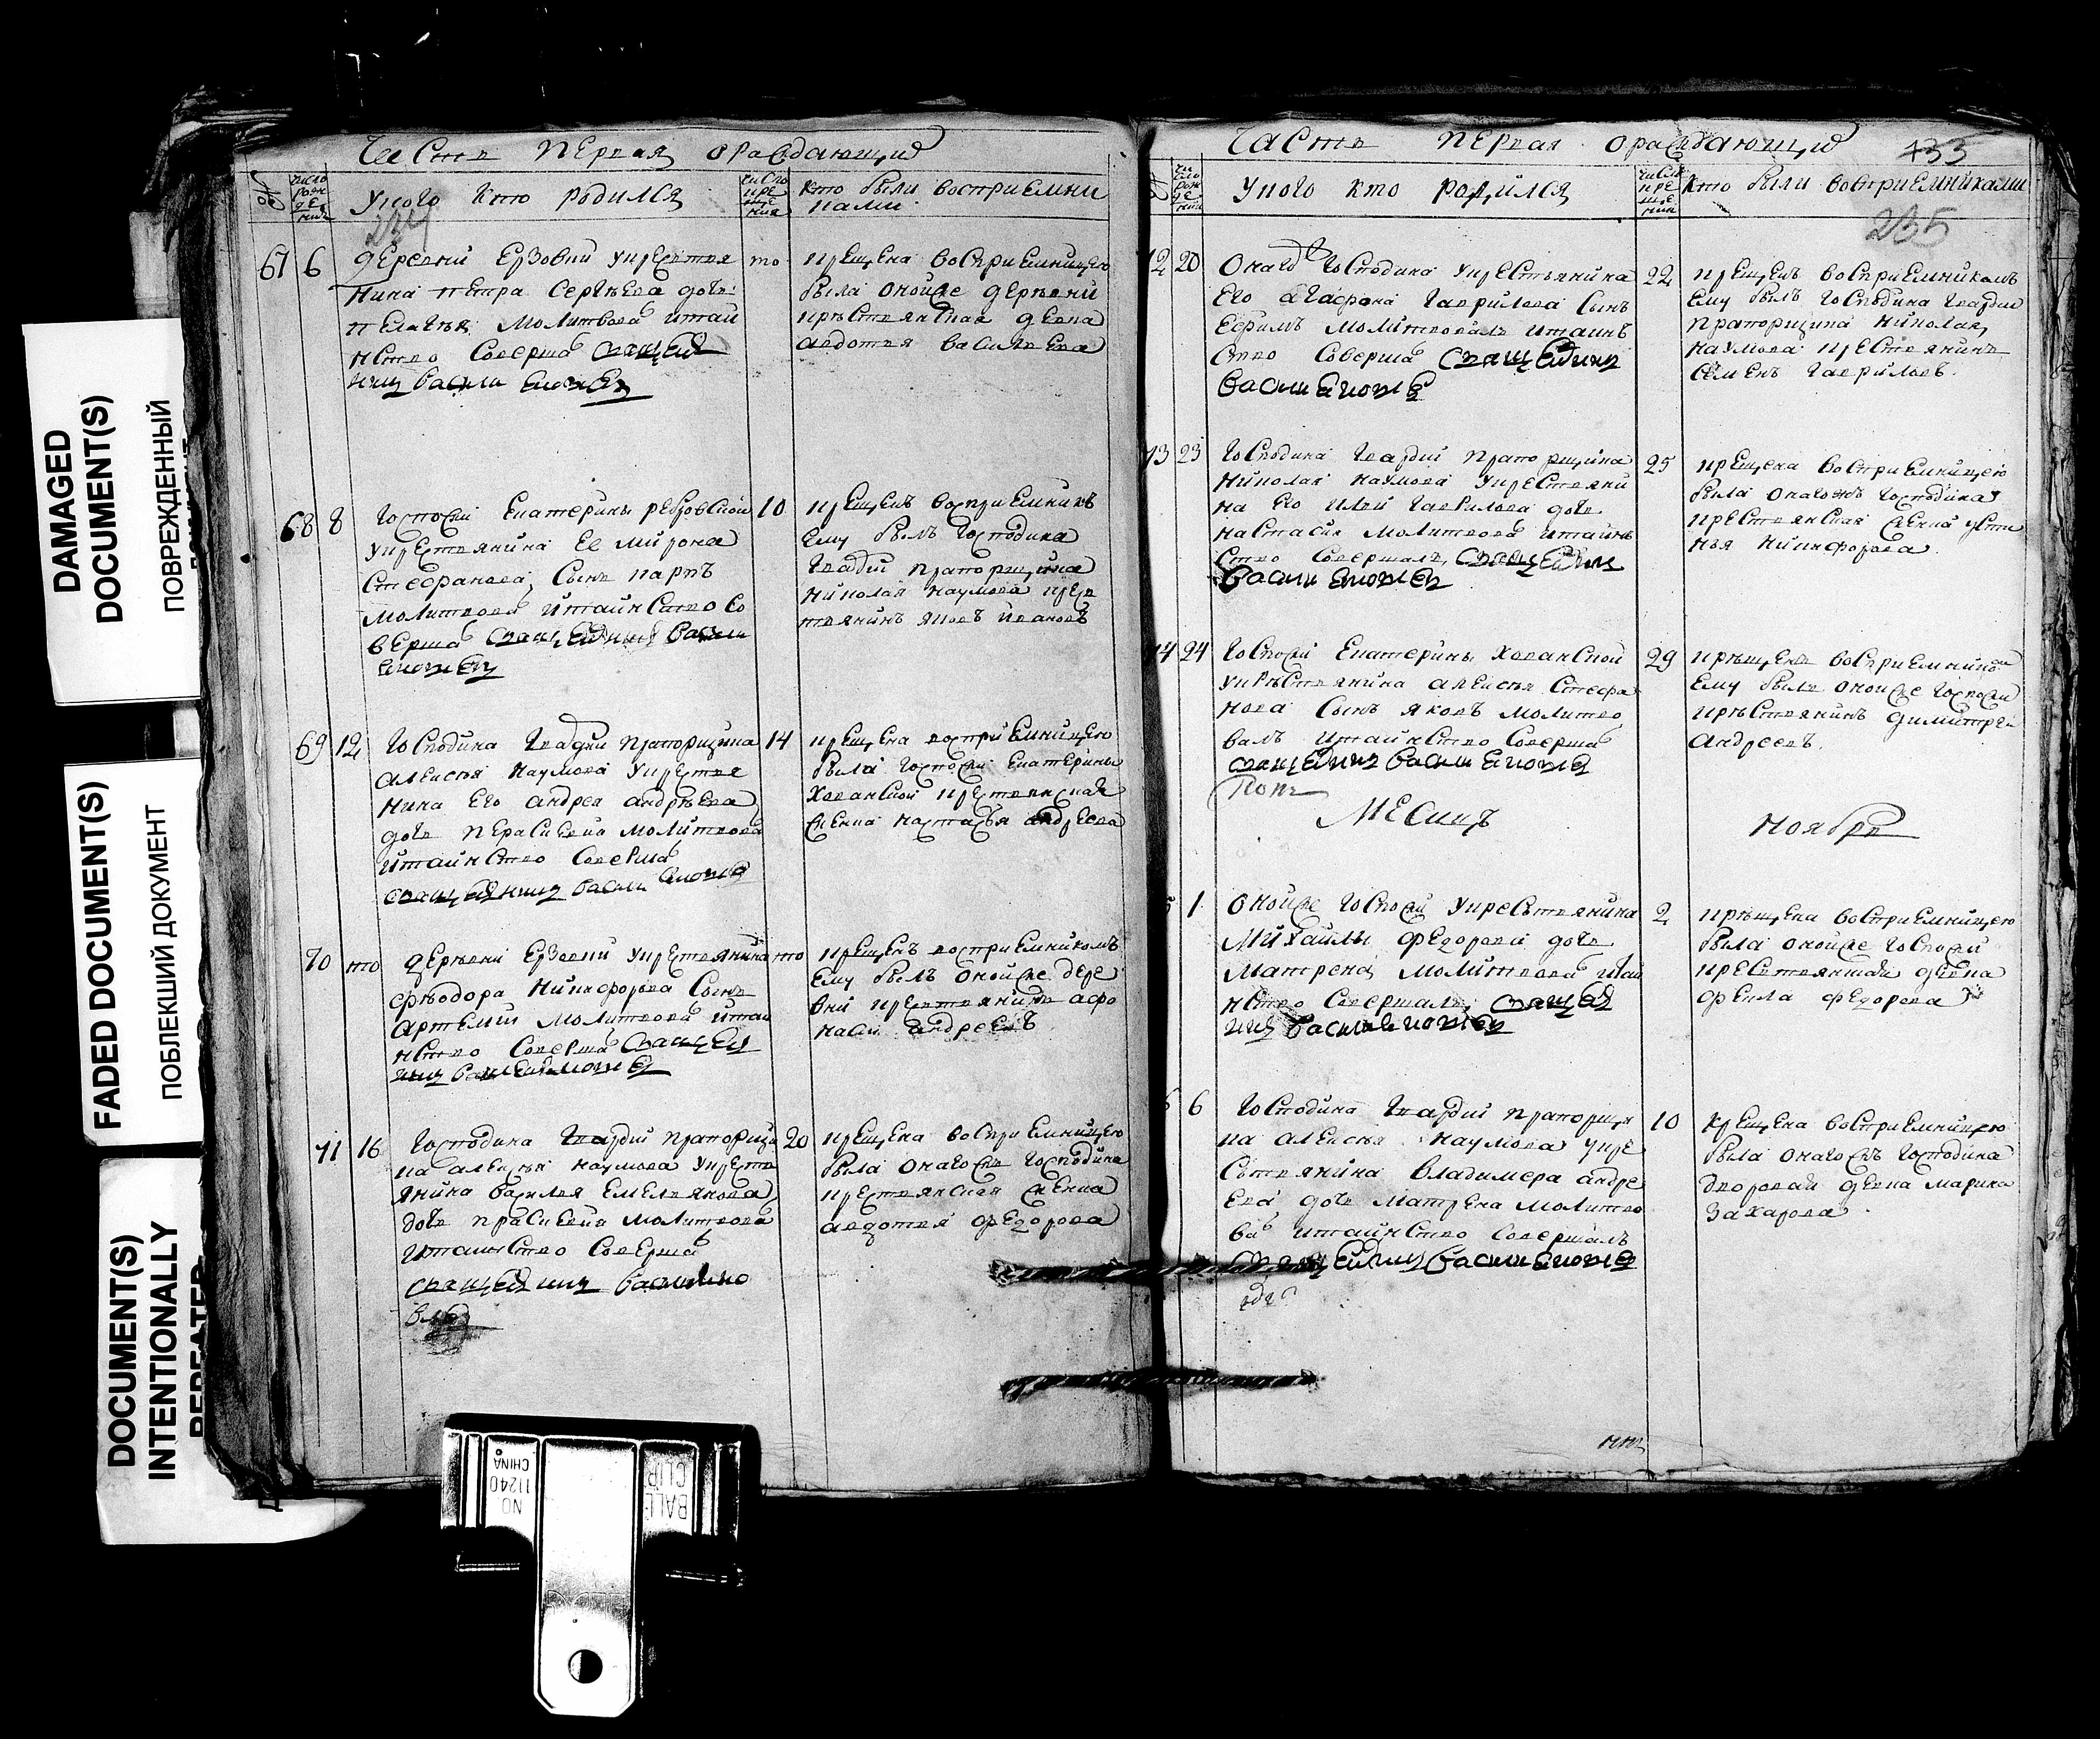 DAMAGED
DOCUMENT(S)
ПОВРЕЖДЕННЫЙ
FADED DOCUMENT(S)
ПОБЛЕКШИЙ ДОКУМЕНТ
DOCUMENT(S)
INTENTIONALLY
REPEATED
Часть первая ораждающих
№
число рождения
у кого кто родился
число крещения
кто были восприемни
ками
234
67 6
деревни Ерзовки у крестья
нина Петра Сергѣева дочь
Пелагѣя молитвовал и таи
нство соверша священ
никъ Васили
то
крещена восприемницею
была оной же деревни
крѣстьянская девка
Авдотья Васильева
68 8
Госпожи Екатерины Ребровской
у крестьянина ее Мирона
Стефанова сынъ Карпъ
молитвовал и таинство со
верша священникъ Васили
10
крещенъ восприемникъ
ему былъ господина
гвардии прапорщика
Николая Наумова крес
тьянинъ Яковъ Ивановъ
69 12
Господина гвардии прапорщика
Алексѣя Наумова у крестья
нина его Андрея Андрѣева
дочь Пераскевия молитвовал
и таинство соверша
священникъ Васили
14
крещена восприемницею
была госпожи Екатерины
Хованской крестьянская
женка Настасья Андреева
70 то
деревни Ерзовки у крестьянина
Фѣодора Никифорова сынъ
Артемий молитвовал и таи
нство соверша священ
никъ Васили
то
крещенъ восприемникомъ
ему былъ оной же дере
вни крестьянинъ Афо
насй Андреевъ
71 16
Господина гвардии прапорщи
ка Алексѣя Наумова у кресть
янина Василья Емельянова
дочь Прасковия молитвовал
и таинство соверша
священникъ
20
крещена восприемницею
была онаго жъ господина
крестьянская женка
Авдотья Федорова
Часть первая ораждающих
133
число рождения
у кого кто родился
число крещения
кто были восприемниками
235
72 20
Онаго господина у крестьянина
его Агафона Гаврилова сынъ
Ефимъ молитвовалъ и таинъ
ство соверша священникъ
Васили
22
крещенъ восприемникомъ
ему былъ господина гвардии
прапорщика Николая
Наумова крестьянинъ
Семенъ Гавриловъ
73 23
Господина гвардии прапорщика
Николая Наумова у крестьяни
на его Ильи Гаврилова дочь
Настасия молитвовал и таинъ
ство совершалъ священник
Васили
25
крещена восприемницею
была онагожъ господина
крестьянская женка Усти
нья Никифорова
74 24
Госпожи Екатерины Хованской
у крѣстьянина Алексѣя Стефа
нова сынъ Яковъ молитво
валъ и таинство соверша
священникъ Васили
29
крѣщенъ восприемником
ему былъ оной же госпожи
крѣстьянинъ Димитрей
Андреевъ
Попъ
Месицъ Ноябрь
1
Оной же госпожи у крестьянина
Михайлы Федорова дочь
Матрена молитвовал и таи
нство совершалъ священ
никъ Васили
2
крѣщена восприемницею
была оной же госпожи
крестьянская девка
Фекла Федорова
6
Господина гвардии прапорщи
ка Алексѣя Наумова у кре
стьянина Владимера Андре
ева дочь Матрена молитво
вал и таинство совершалъ
священникъ Васили
10
крещена восприемницею
была онаго жъ господина
дворовая девка Марина
Захарова
BALL
CLIP
NO
11240
CHINA